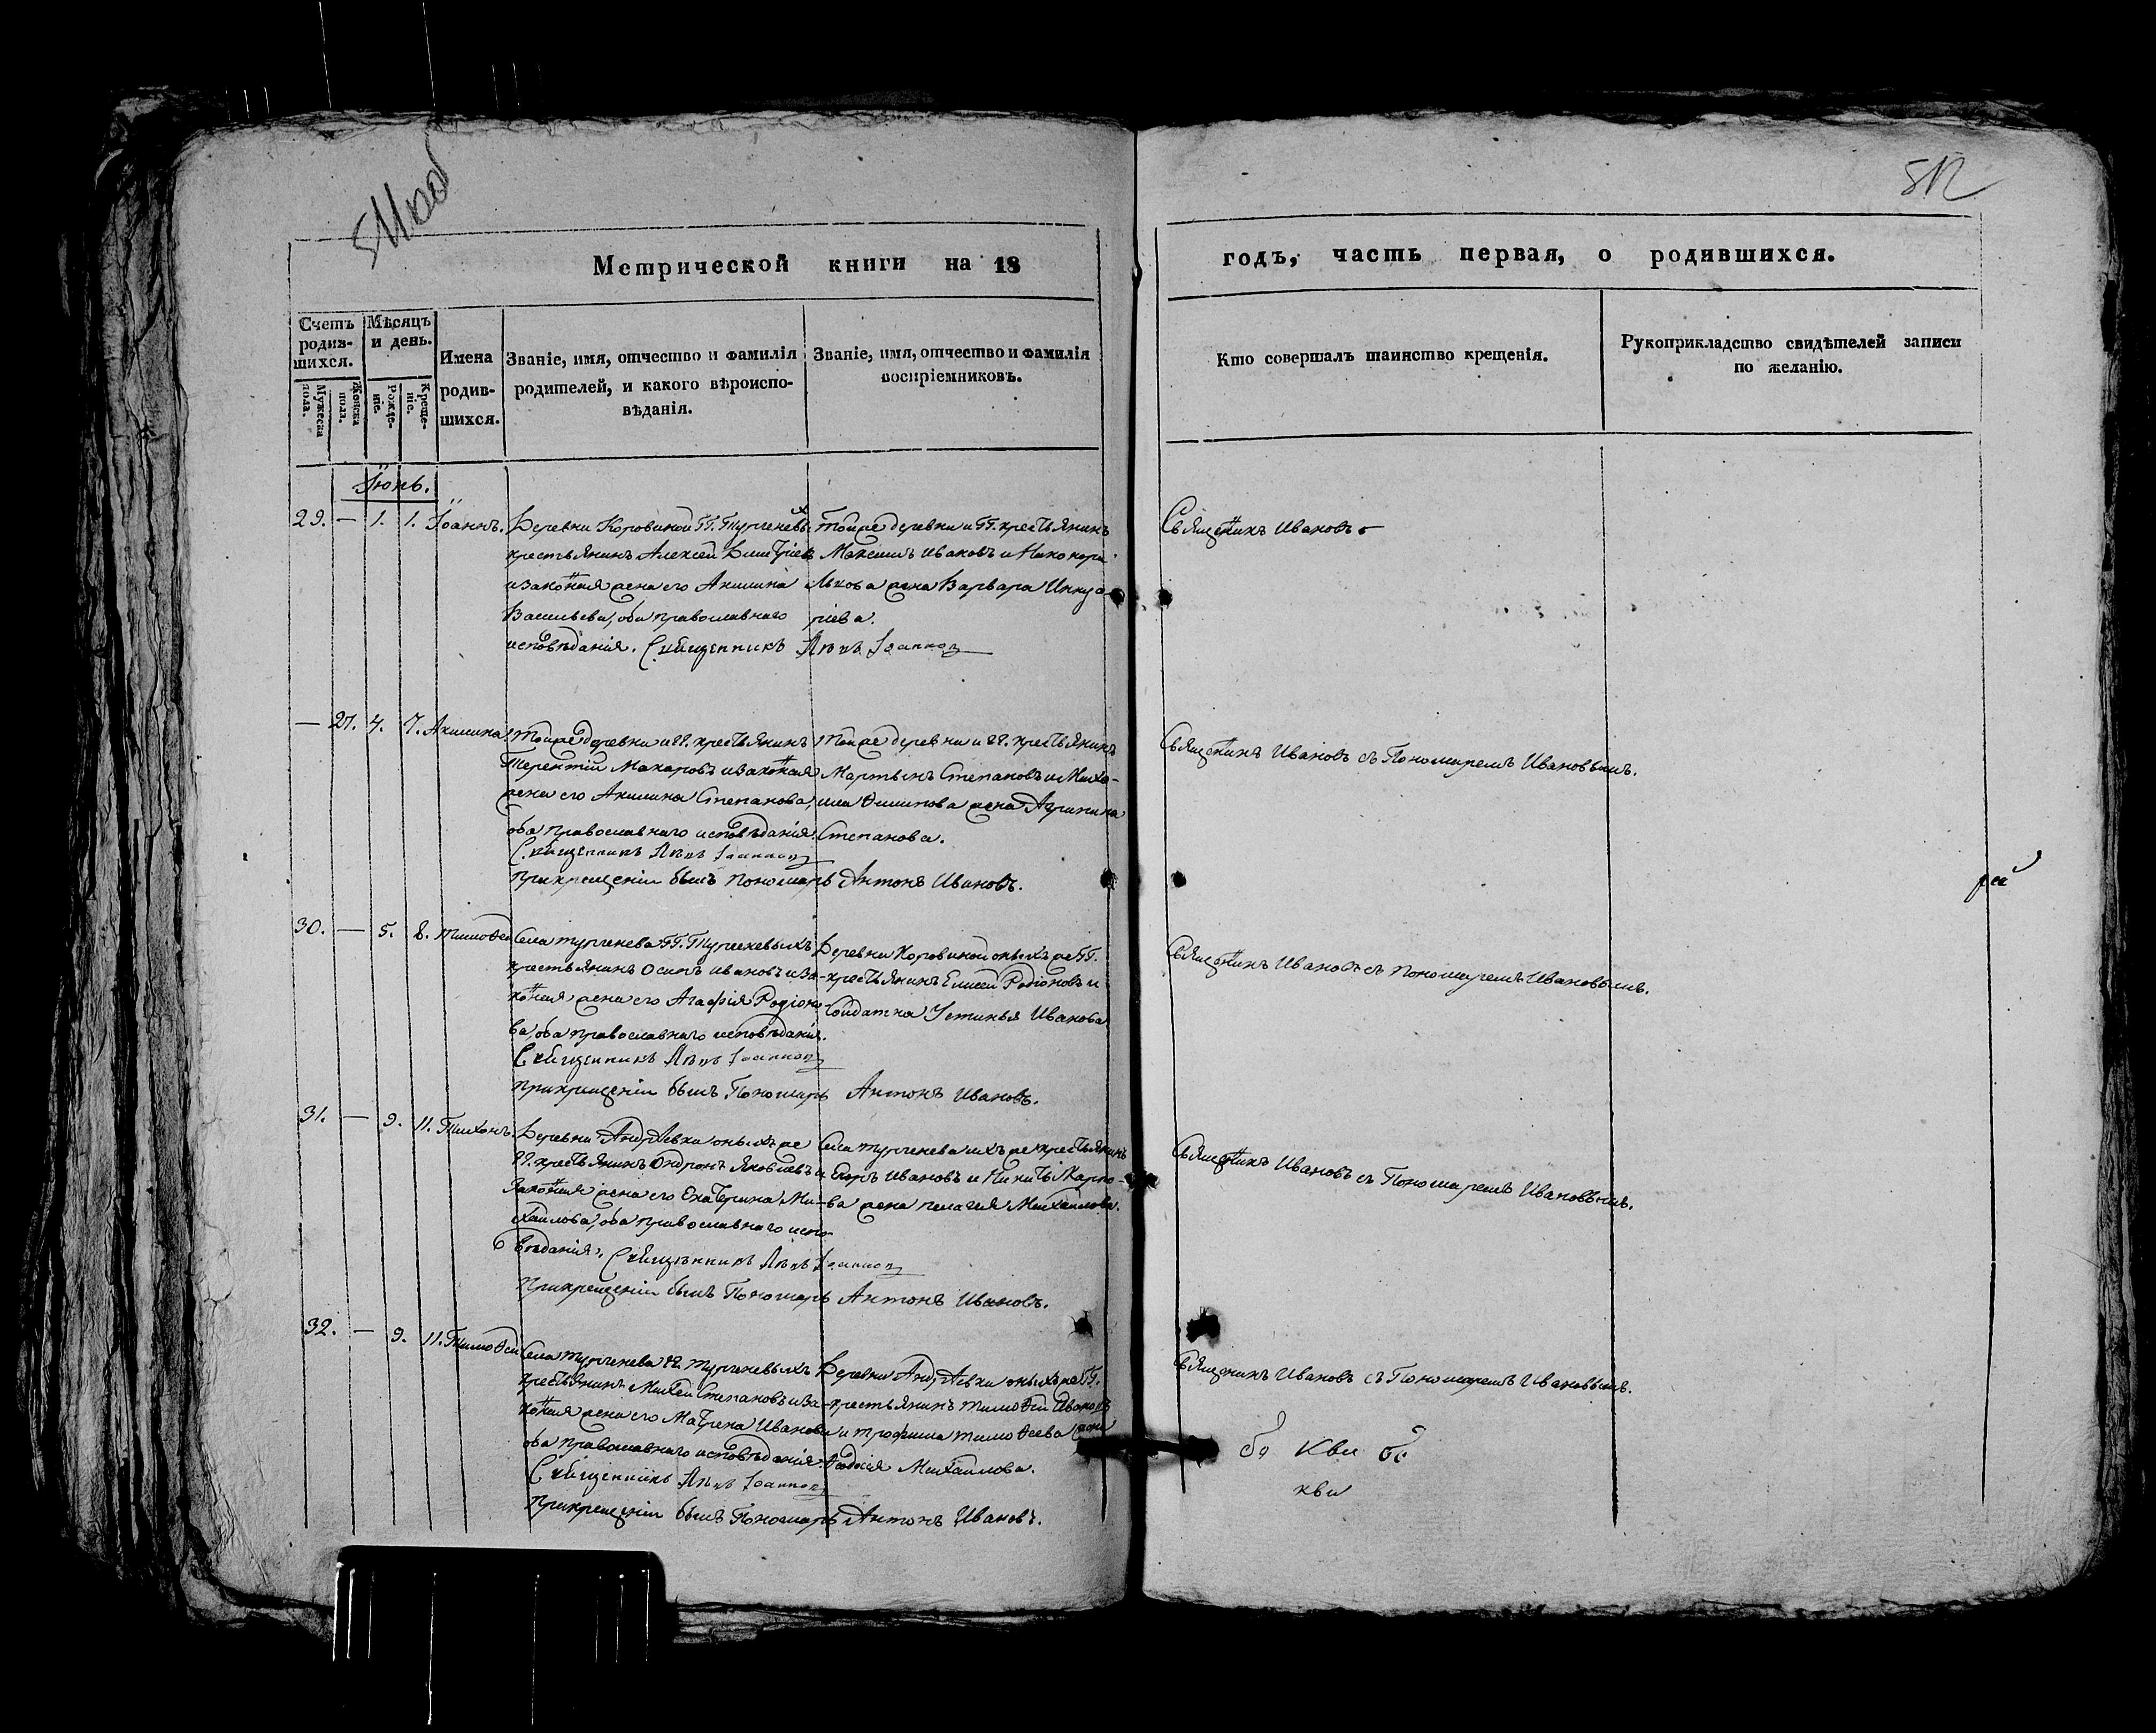 511 об
512
Метрической книги на 18
годъ, часть первая, о родившихся.
Счетъ родив-шихся.
Мужеска пола.
Женска пола.
Мѣсяцъ и день.
Рожде-ніе.
Креще-ніе.
Имена родив-шихся.
Званіе, имя, отчество и фамилія
родителей, и какого вѣроиспо-
вѣданія.
Званіе, имя, отчество и фамилія
воспріемниковъ.
Кто совершалъ таинство крещенія.
Рукоприкладство свидѣтелей записи
по желанію.
Іюнь.
29. — 1. 1. Іоаннъ.
Деревни Коровиной ГГ. Тургеневыхъ
крестьянинъ Алексей Дмитріевъ
и законная жена его Акилина
Васильева, оба православнаго
исповѣданія. Священникъ Іоаннов
Тойже деревни и ГГ. крестьянинъ
Максимъ Ивановъ и Никонора
Львова жена Варвара
ріева.
Священникъ Ивановъ
— 27. 4. 7. Акилина
Тойже деревни и ГГ. крестьянинъ
Терентій Макаровъ и законная
жена его Акилина Степанова,
оба православнаго исповѣданія.
Священникъ Іоаннов
Тойже деревни и ГГ. крестьянинъ
Мартынъ Степановъ и Миха-
ила Филипова жена Агрипина
Степанова.
При крещеніи былъ Пономарь Антонъ Ивановъ.
Священникъ Ивановъ съ Пономаремъ Ивановымъ.
30. — 5. 8. Тимофей
Села Тургенева ГГ. Тургеневыхъ
крестьянинъ Осипъ Ивановъ и за-
конная жена его Агафія Родіоно-
ва, оба православнаго исповѣданія.
Священникъ Іоаннов
Деревни Коровиной оныхъ же ГГ.
крестьянинъ Елисей Родіоновъ и
Солдатка Устинья Иванова
При крещеніи былъ Пономарь Антонъ Ивановъ.
Священникъ Ивановъ съ Пономаремъ Ивановымъ.
31. — 9. 11. Тихонъ.
Деревни Андрѣевки оныхъ же
ГГ. крестьянинъ Андронъ Яковлевъ и
законная жена его Екатерина Ми-
хаилова, оба православнаго испо-
вѣданія. Священникъ Іоаннов
Села Тургенева ихъ же крестьянинъ
Егоръ Ивановъ и Никиты Карпо-
ва жена Пелагея Михайлова.
При крещеніи былъ Пономарь Антонъ Ивановъ.
Священникъ Ивановъ съ Пономаремъ Ивановымъ.
32. — 9. 11. Тимофей
Села Тургенева ГГ. Тургеневыхъ
крестьянинъ Михей Степановъ и за-
конная жена его Матрена Иванова
оба православнаго исповѣданія.
Священникъ Іоаннов
Деревни Андрѣевки оныхъ же ГГ.
крестьянинъ Тимофей Ивановъ
и Трофима Тимофеева жена
Михайлова.
При крещеніи былъ Пономарь Антонъ Ивановъ.
Священникъ Ивановъ съ Пономаремъ Ивановымъ.